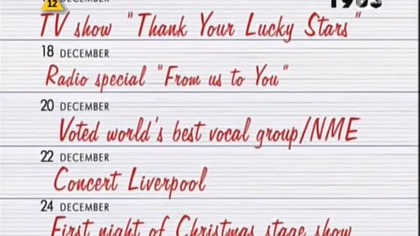 12 DECEMBER 1963
TV show "Thank Your Lucky Stars"
18 DECEMBER
Radio special "From us to You"
20 DECEMBER
Voted world's best vocal group/NME
22 DECEMBER
Concert Liverpool
24 DECEMBER
First night of Christmas stage show